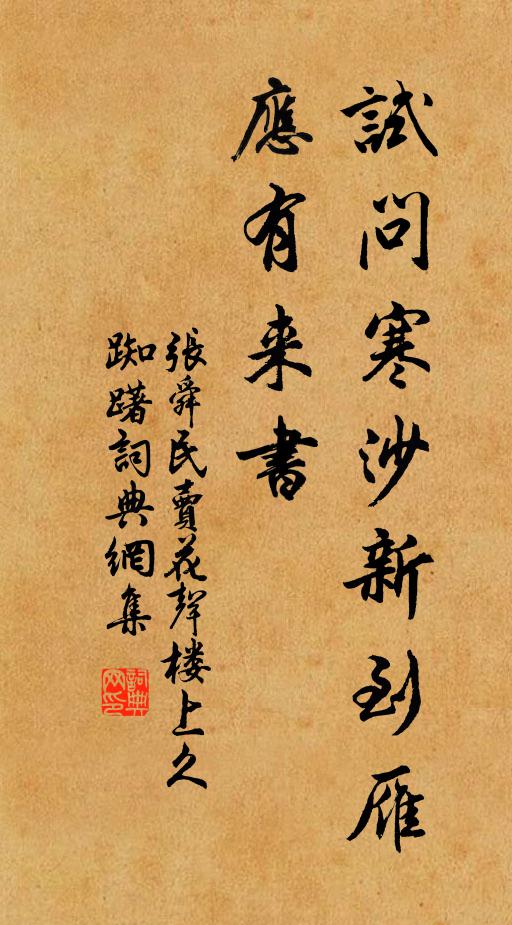 試問寒沙新到雁
應有来書
張舜民賣花聲楼上久
踟躇詞典網集
詞典網印